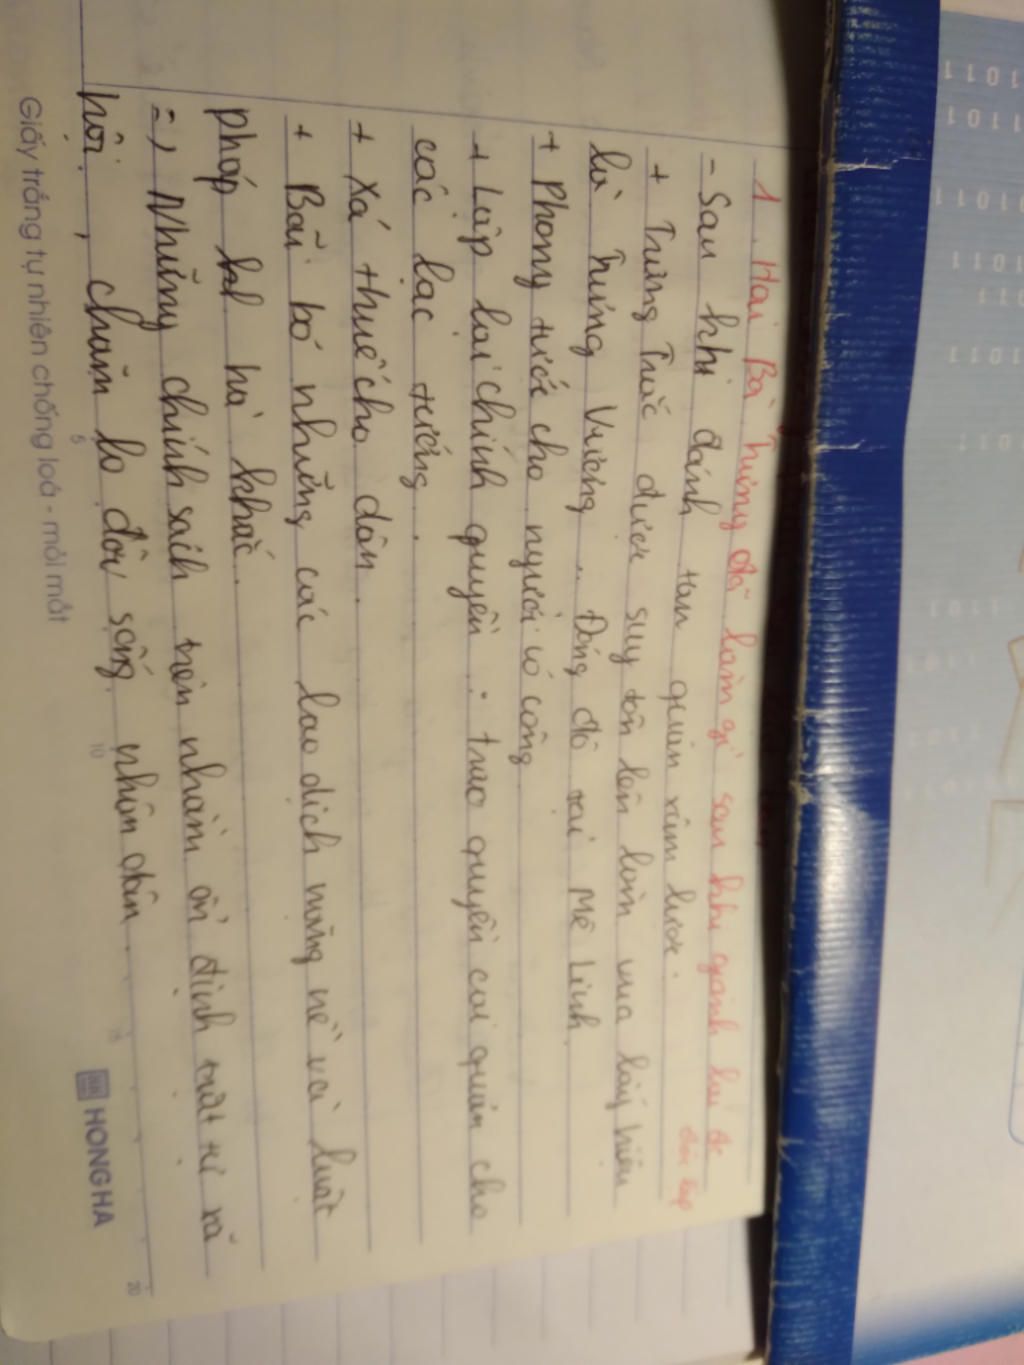 1. Hai Bà Trưng đã làm gì sau khi giành lại đc
độc lập
- Sau khi đánh tan quân xâm lược.
+ Trưng Trắc được suy tôn lên làm vua lấy hiệu
là Trưng Vương.. Đóng đô tại Mê Linh.
+ Phong tước cho người có công
+ Lập lại chính quyền. trao quyền cai quản cho
các lạc tướng.
+ Xá thuế cho dân.
+ Bãi bỏ những các lao dịch nặng nề và luật
pháp hà khắc.
=) Những chính sách trên nhằm ổn định trật tự xã
hội, chăm lo đời sống nhân dân.
Giấy trắng tự nhiên chống loá - mỏi mắt
5
10
20
HONGHA
11011
1101
11011
01011
11011
011
11011
1011